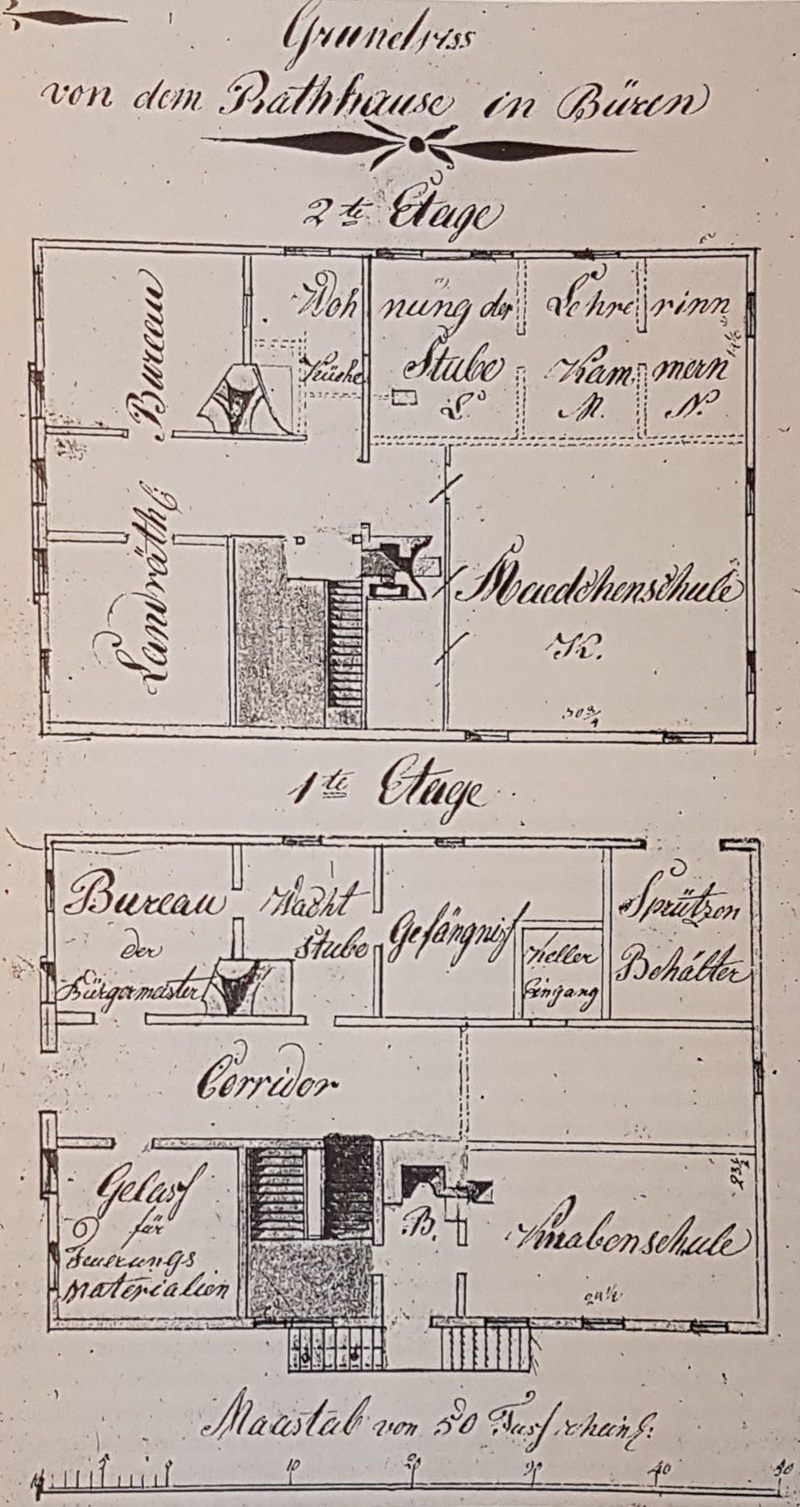 Grundriss
von dem Rathhause in Büren
2te Etage
Bureau
Landräthl:
Woh nung der Lehre rinn
Küche
Stube
L.
Kam mern
M. N.
Maedchenschule
K.
30 3/4
1te Etage
Bureau
der
Bürgermeister
Wacht
stube
Gefängniß
Keller
Eingang
Sprützen
Behälter
Corridor
Gelaß
für
Feuerungs
Materialien
B.
Knabenschule
23 1/2
24 1/2
Maastab von 50 Fuß rheinl:
10 20 30 40 50